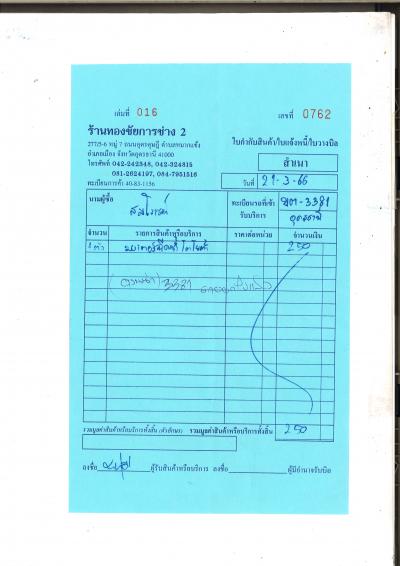 เล่มที่ 016 เลขที่ 0762
ร้านทองชัยการช่าง 2
277/5-6 หมู่ 7 ถนนอุดรดุษฎี ตำบลหมากแข้ง
อำเภอเมือง จังหวัดอุดรธานี 41000
โทรศัพท์ 042-242348, 042-324315
081-2624197, 084-7951516
ทะเบียนการค้า 40-83-1156
ใบกำกับสินค้า/ใบแจ้งหนี้/ใบวางบิล
สำเนา
วันที่ 21-3-66
นามผู้ซื้อ
ทะเบียนรถที่เข้ารับบริการ 3381
อุดรธานี
จำนวน รายการสินค้าหรือบริการ ราคาต่อหน่วย จำนวนเงิน
1 ตัว 250
3381
รวมมูลค่าสินค้าหรือบริการทั้งสิ้น (ตัวอักษร) รวมมูลค่าสินค้าหรือบริการทั้งสิ้น 250
ลงชื่อ ผู้รับสินค้าหรือบริการ ลงชื่อ ผู้มีอำนาจรับเงิน